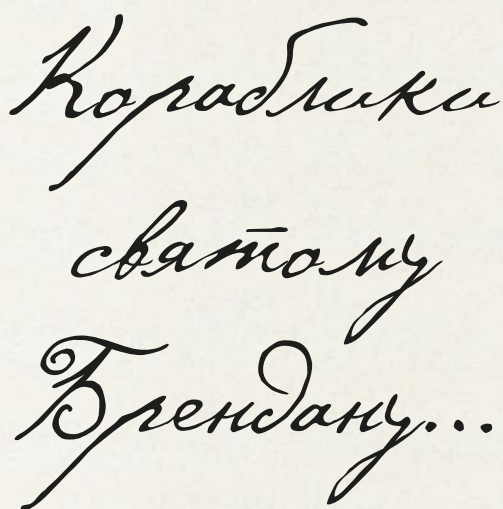 Кораблики
святому
Брендану...